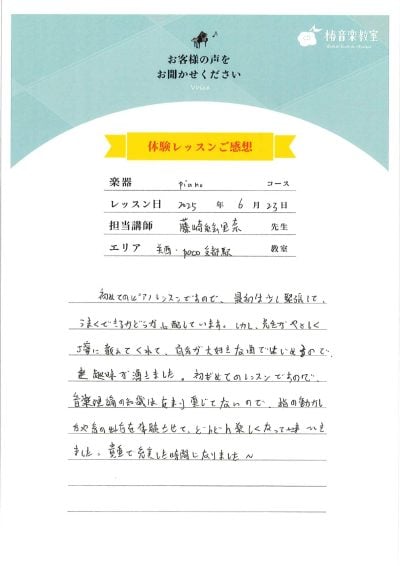 椿音楽教室
お客様の声を
お聞かせください
Voice
体験レッスンご感想
楽器 piano コース
レッスン日 2025 年 6 月 23 日
担当講師 藤崎 里奈 先生
エリア 教室
初めてのピアノレッスンですので、最初は少し緊張して、
うまくできるかどうか心配しています。しかし、先生がやさしく
丁寧に教えてくれて、自分が大好きな曲ではじめますので、
更趣味が湧きました。初めてのレッスンですので、
音楽理論の知識はあまり重じてないので、指の動かし
方や音の出方を体験させて、どんどん楽しくなって
ました。貴重で充実した時間になりました〜